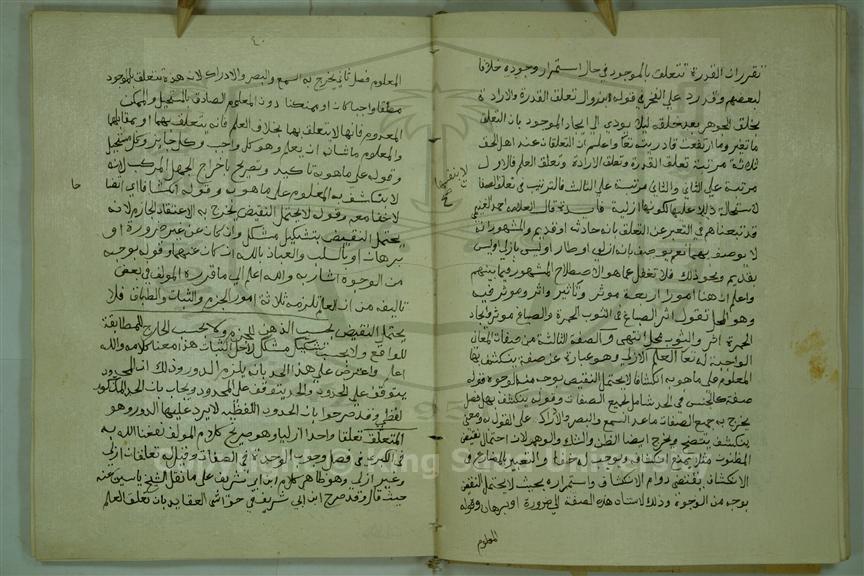 تقرر ان القدرة تتعلق بالموجود في حال استمرار وجوده خلافا
لبعضهم وقد رد على الفخر في قوله تعلق القدرة والارادة
بخلق الجوهر بعد خلقه ليلا يودي الى ايجاد الموجود بان التعلق
ما تغير وما ارتفعت قادريته تعا واعلم ان التعلقات عند اهل الحق
ثلاثة مرتبة تعلق القدرة وتعلق الارادة وتعلق العلم فالاول
مرتبة على الثاني والثاني مرتبة على الثالث فالترتيب في تعلق الصفات
لاستحالة ذلك عليها لكونها ازلية فايدة قال العلامه احمد الغنيمي
قد تبعناهم في التعبير عن التعلق بانه حادث او قديم والمشهور انه
لا يوصف بهما نعم يوصف بانه ازلي او طار او ليس بازلي وليس
بقديم ونحو ذلك فلا تغفل عما هو الاصطلاح المشهور فيما بينهم
واعلم ان هنا امورا اربعة موثر وتاثير واثر وموثر فيه
وهو المحل تقول اثر الصباغ في الثوب الحمرة والصباغ موثر وايجاد
الحمرة اثر والثوب محل انتهى والصفة الثالثة من صفات المعاني
الواجبة له تعا العلم الازلي وهو عبارة عن صفة ينكشف بها
المعلوم على ما هو به انكشافا لا يحتمل النقيض بوجه من الوجوه فقوله
صفة كالجنس في الحد شامل لجميع الصفات وقوله ينكشف بها فصل
يخرج به جميع الصفات ما عدا السمع والبصر والادراك على القول به ومعنى
ينكشف يتضح ويخرج ايضا الظن والشك والوهم لان احتمال نقيض
المظنون مثلا يمنع انكشافه ويوجب له خفاء والتعبير بالمضارع في
الانكشاف يقتضي دوام الانكشاف واستمراره بحيث لا يحتمل النقيض
بوجه من الوجوه وذلك لاستناد هذه الصفة الى ضرورة او برهان وقوله
المعلوم
المعلوم فصل ثاني يخرج به السمع والبصر والادراك لان هذه تتعلق بالموجود
مطلقا واجبا كان او ممكنا دون المعلوم الصادق بالمستحيل والممكن
المعدوم فانها لا تتعلق بها بخلاف العلم فانه يتعلق بهما وبمقابلهما
والمعلوم ما شانه ان يعلم وهو كل واجب وكل جايز وكل مستحيل
وقوله على ما هو به تاكيد وتصريح باخراج الجهل المركب لانه
لا ينكشف به المعلوم على ما هو به وقوله انكشافا اي اتضاحا
لا خفا معه وقوله لا يحتمل النقيض يخرج به الاعتقاد الجازم لانه
يحتمل النقيض بتشكيك مشكك وان كان عن غير ضرورة او
برهان او بالسلب والعياذ بالله ان كان عنهما وقوله بوجه
من الوجوه اشار به والله اعلم الى ما قرره المولف في بعض
تاليفه من ان العلم تلزمه ثلاثة امور الجزم والثبات والطباق فلا
يحتمل النقيض بحسب الذهن للجزم ولا بحسب الخارج للمطابقة
للواقع ولا بحسب تشكيك مشكك لاجل الثبات هذا معنى كلامه والله
اعلم واعترض على هذا الحد بانه يلزم الدور وذلك ان المحدود
يتوقف على الحدود والحد يتوقف على المحدود ويجاب بان الحد المذكور
لفظي وقد صرحوا بان الحدود اللفظية لا يرد عليها الدور وهو
المتعلق تعلقا واحدا ازليا وهو صريح كلام المولف نفعنا الله به
في الكبرى في فصل وجوب الوحدة في الصفات وقيل له تعلقات ازلي
وغير ازلي وهو ظاهر كلام ابن ابي شريف على ما نقل الشيخ ياسين عنه
حيث قال وقد صرح ابن ابي شريف في حواشي العقايد بان تعلق العلم
Copyright © King Saud University